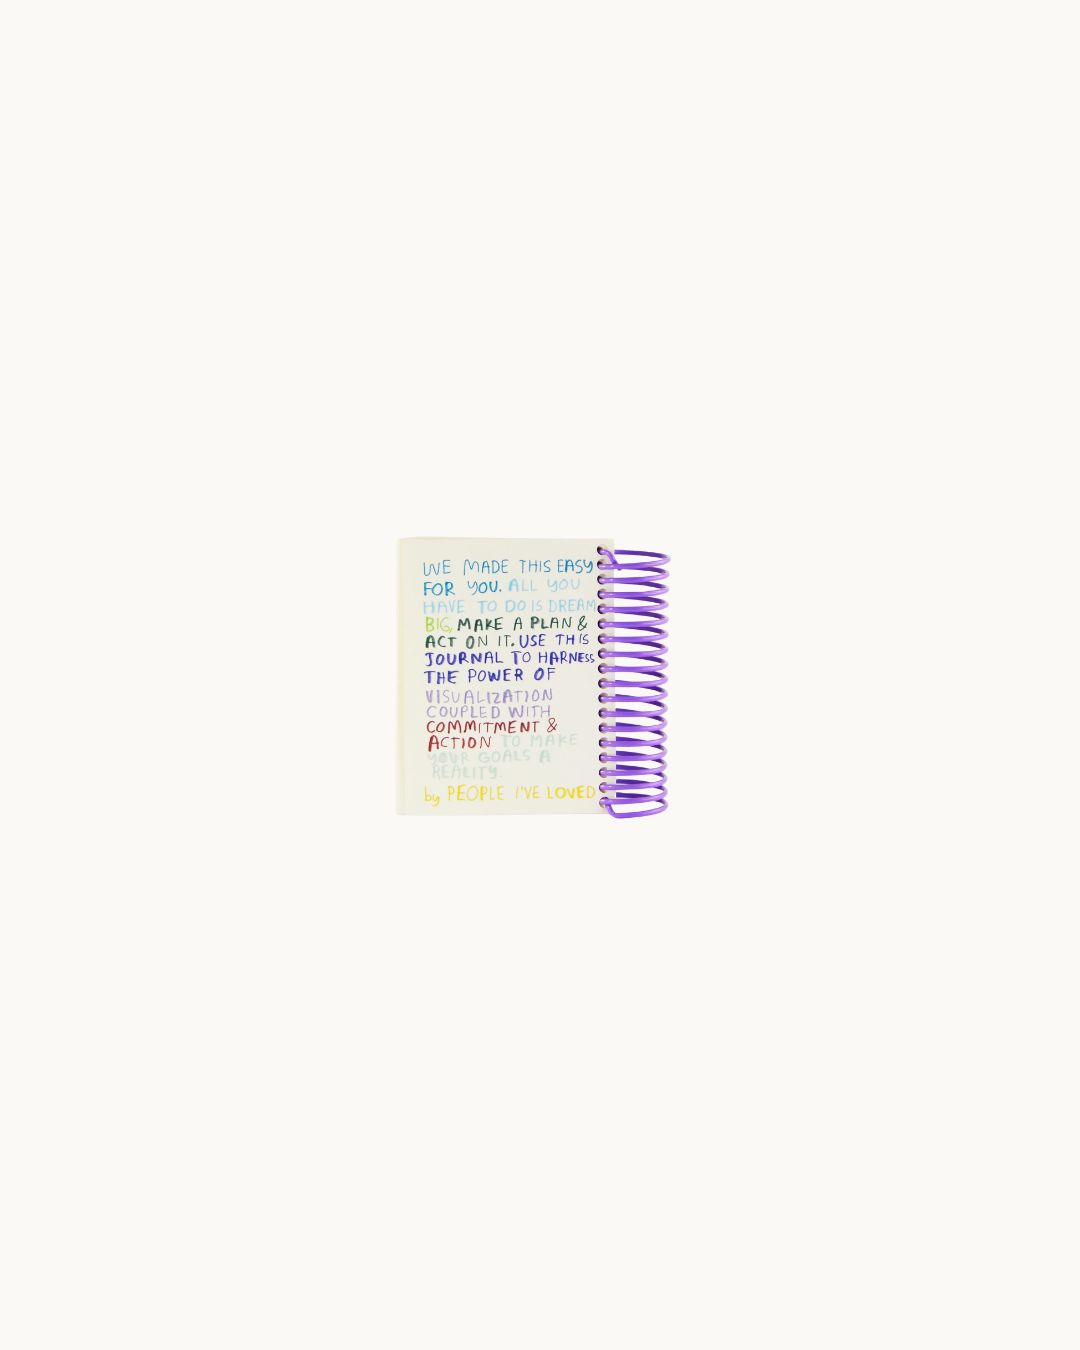 WE MADE THIS EASY
FOR YOU. ALL YOU
HAVE TO DO IS DREAM
BIG, MAKE A PLAN &
ACT ON IT. USE THIS
JOURNAL TO HARNESS
THE POWER OF
VISUALIZATION
COUPLED WITH
COMMITMENT &
ACTION TO MAKE
YOUR GOALS A
REALITY.
by PEOPLE I'VE LOVED